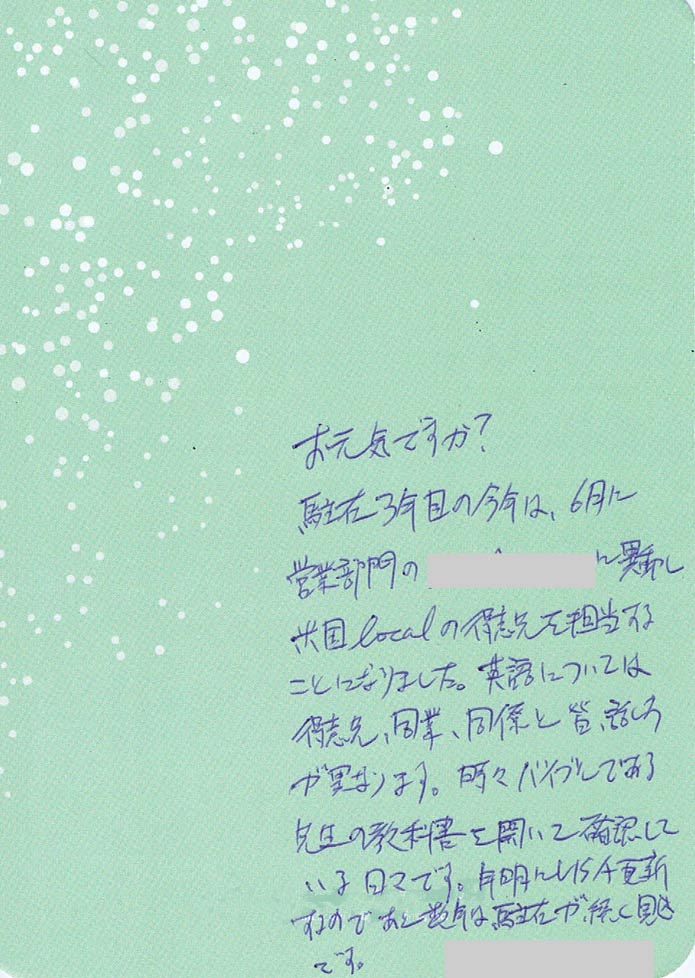 お元気ですか?
駐在3年目の今年は、6月に
営業部門の に異動し
米国localの得意先を担当する
ことになりました。英語については
得意先、同業、同僚と皆、話し方
が異なります。時々バイブルである
先生の教科書を開いて確認して
いる日々です。年明にVISA更新
するのであと数年は駐在が続く見込
です。